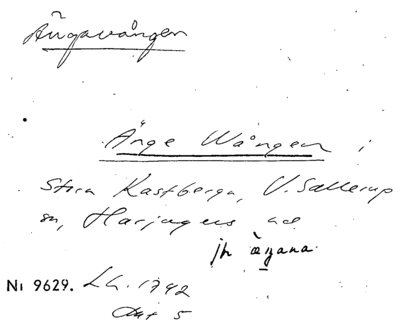 Ängavången
Änge Wången i
Stora Kastberga, V. Sallerup
sn, Harjagers hd
jh
Nı 9629. LH. 1792
Akt 5